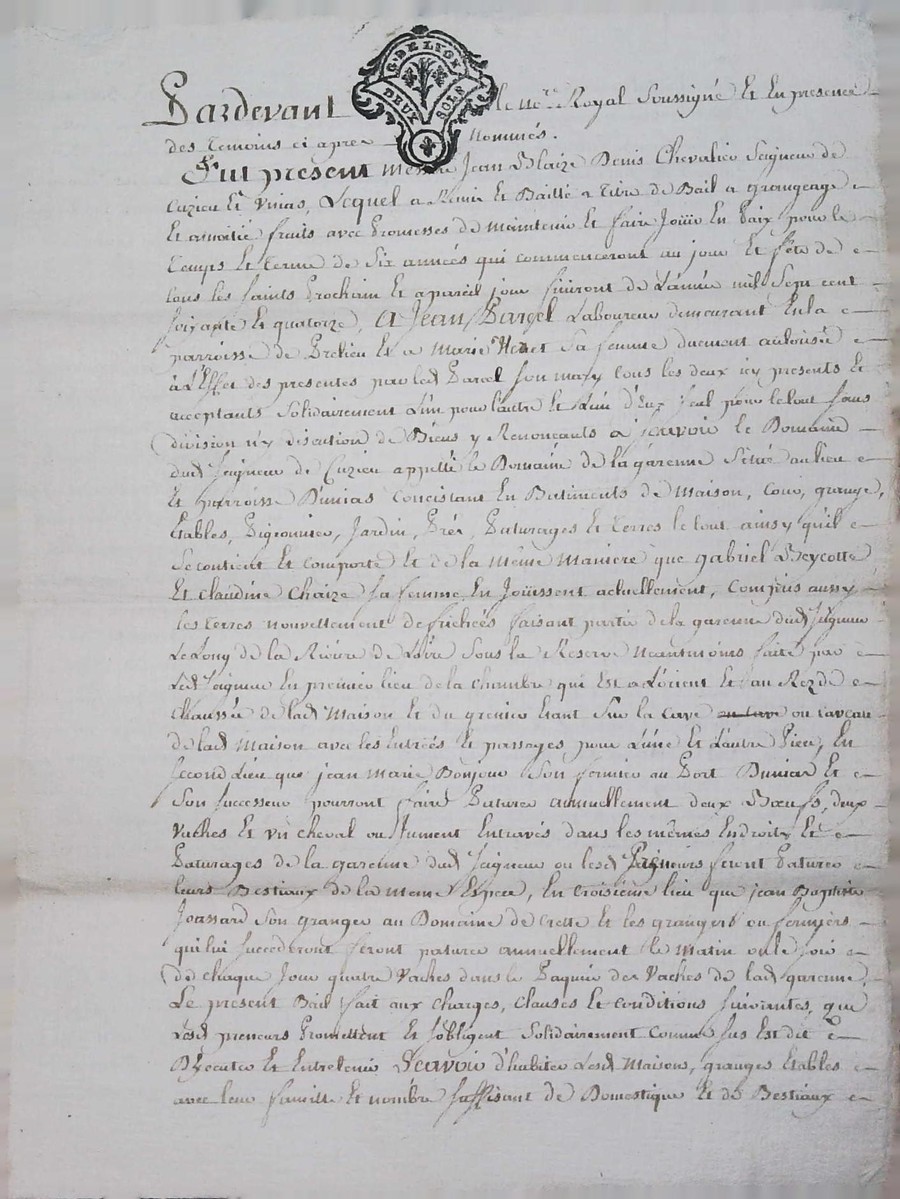 G. DE LYON
DEUX SOLS
Pardevant le no.re Royal Soussigné Et En presence
des temoins ci apres nommés.
Fut present messire Jean Blaize Denis Chevalier Seigneur de
Cuzieu Et Unias, Lequel a Remis Et Baillé a titre de Bail a grangeage
Et amoitié fruits avec Promesses de maintenir Et faire Joüir En Paix pour le
temps Et terme de Six années qui commenceront au jour Et fête de
tous les saints Prochain Et apareil jour finiront de L'année mil Sept cent
soixante Et quatorze, A Jean Parcel Laboureur demeurant En la
parroisse de Et a Marie sa femme duement autorisée
à L'Effet des presentes par led Parcel Son mary tous les deux icy presents Et
acceptants Solidairement L'un pour l'autre Et L'un d'Eux seul pour le tout sans
division n'y discution de Biens y Renonçants a sçavoir le Domaine
dud Seigneur de Cuzieu appellé le Domaine de la garenne Sitüé au lieu
Et parroisse D'unias Concistant En Batiments de Maison, Cour, grange,
Etables, Pigeonnier, Jardin, Prés, Paturages Et terres le tout ainsy qu'il
Se contient Et comporte Et de la même maniere que gabriel
Et claudine Chaize sa femme En Joüissent actuellement, compris aussy
les terres nouvellement defrichées faisant partie de la garenne dud Seigneur
Le Long de la Riviere de Loire Sous la Reserve Neantmoins faite par
Led Seigneur En premier lieu de la chambre qui Est a L'orient Et au Rez de
chaussée de lad Maison Et du grenier Etant Sur la cave ou cave ou caveau
de lad Maison avec les Entrées Et passages pour L'une Et L'autre Piece, En
second Lieu que jean marie Bonjour Son fermier au Port Dunias Et
Son Successeur pourront faire Paturer annuellement deux Bœufs, deux
vaches Et un cheval ou Jument Entravés dans les mêmes Endroits Et
Paturages de la garenne dud Seigneur ou lesd feront Paturer
leurs Bestiaux de la meme Espece, En troisieme lieu que jean Baptiste
Joassard Son granger au Domaine de Crette Et les grangers ou fermiers
qui lui succederont feront paturer annuellement le Matin ou le soir
de chaque Jour quatre Vaches dans le Paquier des Vaches de lad garenne,
Le present Bail fait aux charges, clauses Et conditions suivantes, que
Lesd preneurs Promettent Et s'obligent Solidairement comme sus Est dit
D'Executer Et Entretenir Scavoir d'habiter Lesd Maisons, granges Etables
avec leur famille Et nombre suffisant de Domestique Et de Bestiaux